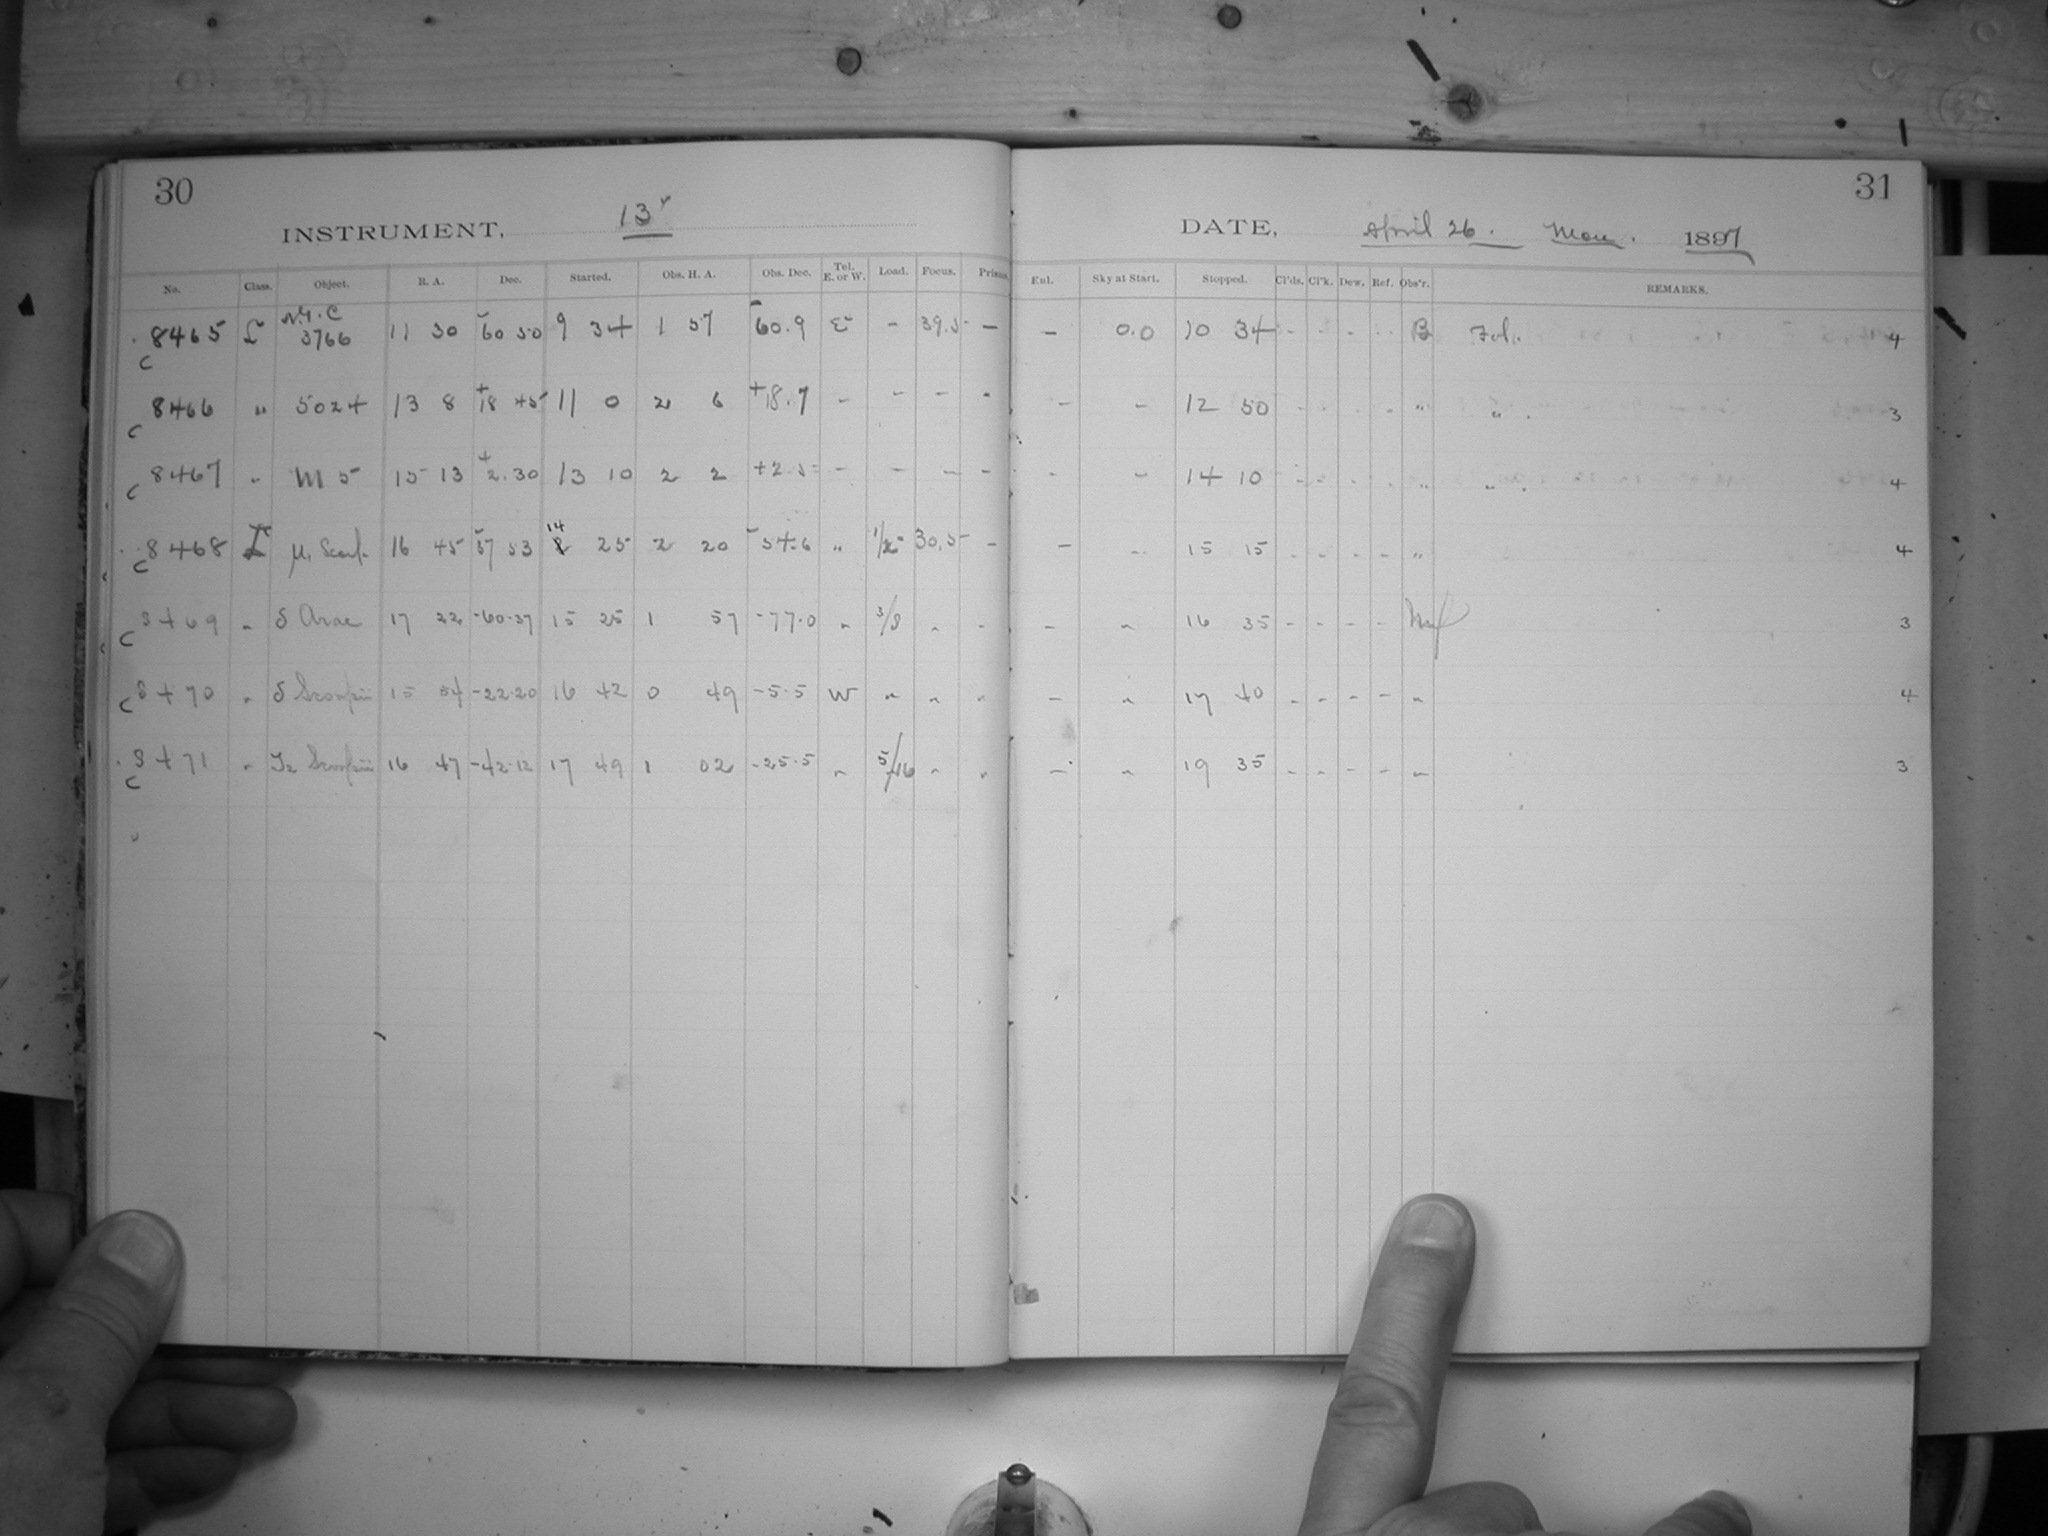 30
31
INSTRUMENT, 13"
DATE, April 26. Mon. 1897
No. Class. Object. R. A. Dec. Started. Obs. H. A. Obs. Dec. Tel. E. or W. Load. Focus. Prisms. Eul. Sky at Start. Stopped. Cl'ds. Cl'k. Dew. Ref. Obs'r. REMARKS.
N.G.C
C 8465 L 3766 11 30 -60 50 9 34 1 57 -60.9 E - 39.5 - - 0.0 10 34 - - - - B 4
C 8466 " 5024 13 8 +18 45 11 0 2 6 +18.7 - - - - - - 12 50 - - - - " " 3
C 8467 " M 5 15 13 +2.30 13 10 2 2 +2.5 - - - - - - 14 10 - - - - " " 4
C 8468 μ, Scorp. 16 45 -37 53 14 25 2 20 -54.6 " 1/2 30.5 - - - 15 15 - - - - " 4
C 8469 " δ Arae 17 22 -60.37 15 25 1 57 -77.0 " 3/8 " - - " 16 35 - - - - 3
C 8470 " δ Scorpii 15 54 -22.20 16 42 0 49 -5.5 W " " " - " 17 40 - - - - " 4
C 8471 " Scorpii 16 47 -42.12 17 49 1 02 -25.5 " 5/16 " " - " 19 35 - - - - " 3